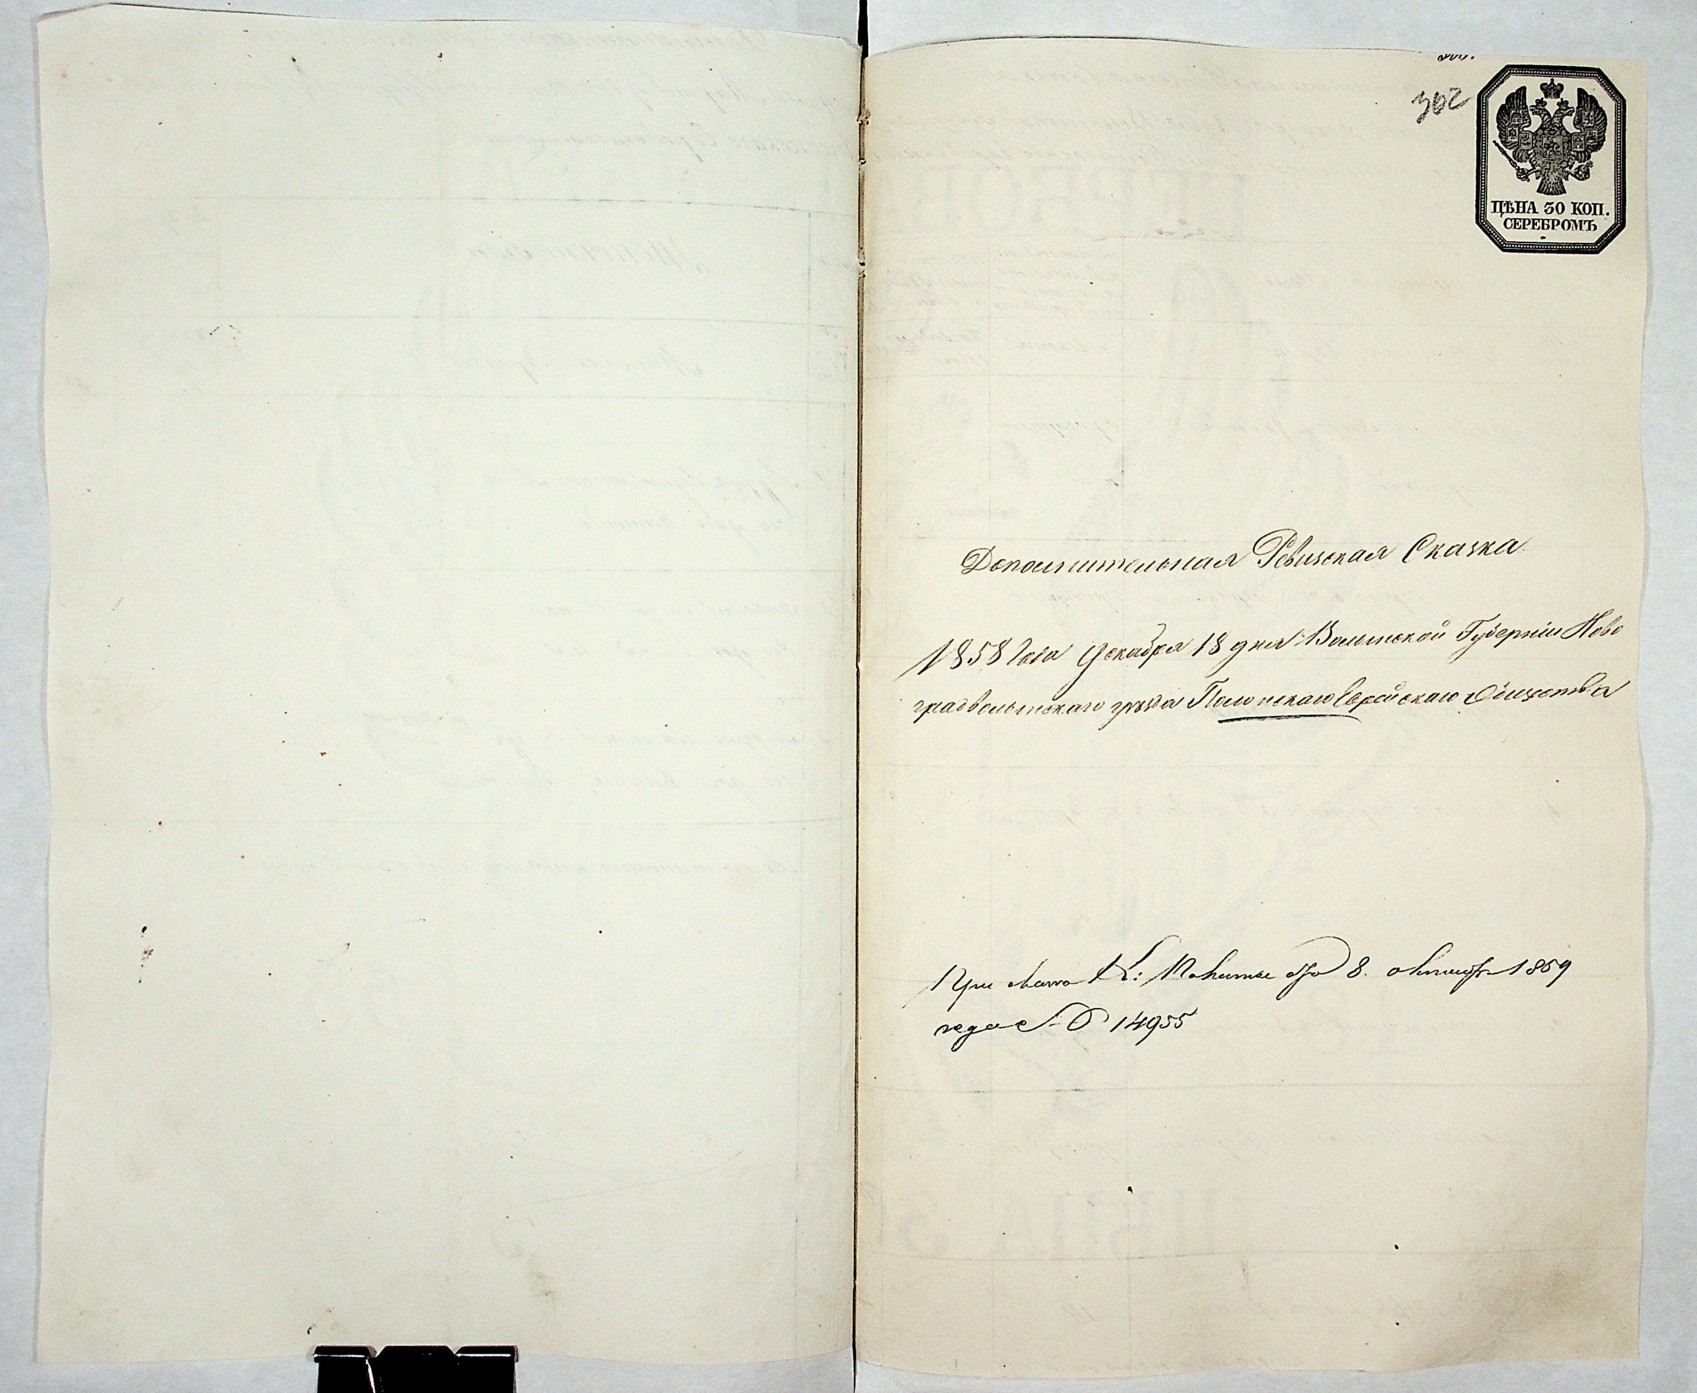 302
ЦѢНА 30 КОП.
СЕРЕБРОМЪ
Дополнительная Ревизская Сказка
1858 года Декабря 18 дня Волынской Губерніи Ново
градволынскаго уѣзда Полонскаго Еврейскаго Общества
При указѣ К: Палаты отъ 8. октября 1859
года с № 14955